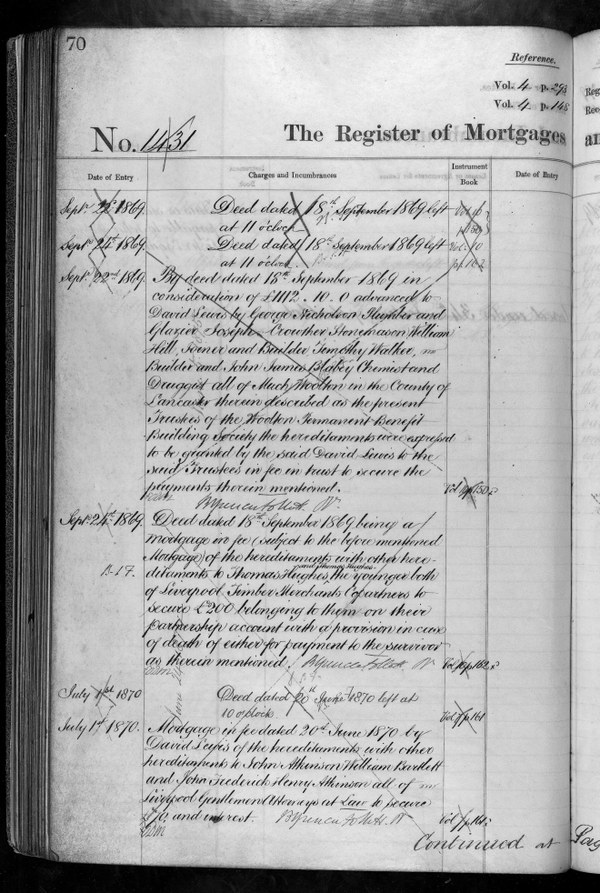 70
Reference.
Vol. 4 p. 293
Vol. 4 p. 148
No. 1431 The Register of Mortgages
Date of Entry Charges and Incumbrances Instrument Book Date of Entry
Septr 22d 1869 Deed dated 18th September 1869 left
at 11 o'clock
Septr 24th 1869 Deed dated 18th September 1869 left Vol. 10
at 11 o'clock p. 162
Septr 22nd 1869 By deed dated 18th September 1869 in
consideration of £1112.10.0 advanced to
David Lewis by George Nicholson Plumber and
Glazier Joseph Crowther Stonemason William
Hill, Joiner and Builder Timothy Walker,
Builder and John James Blakey Chemist and
Druggist all of Much Woolton in the County of
Lancaster therein described as the present
Trustees of the Woolton Permanent Benefit
Building Society the hereditaments were expressed
to be granted by the said David Lewis to the
said Trustees in fee in trust to secure the
payments therein mentioned.
Septr 24th 1869 Deed dated 18th September 1869 being a
mortgage in fee (subject to the before mentioned
Mortgage) of the hereditaments with other here-
B.17. ditaments to Thomas Hughes the younger and Thomas Hughes both
of Liverpool Timber Merchants Copartners to
secure £200 belonging to them on their
partnership account with a provision in case
of death of either for payment to the survivor
as therein mentioned. Vol 10 p 162
July 1st 1870 Deed dated 20th June 1870 left at
10 o'clock p 161
July 1st 1870. Mortgage in fee dated 20th June 1870 by
David Lewis of the hereditaments with other
hereditaments to John Atkinson William Bartlett
and John Frederick Henry Atkinson all of
Liverpool Gentlemen Attorneys at Law to secure
and interest.
Continued at Pag